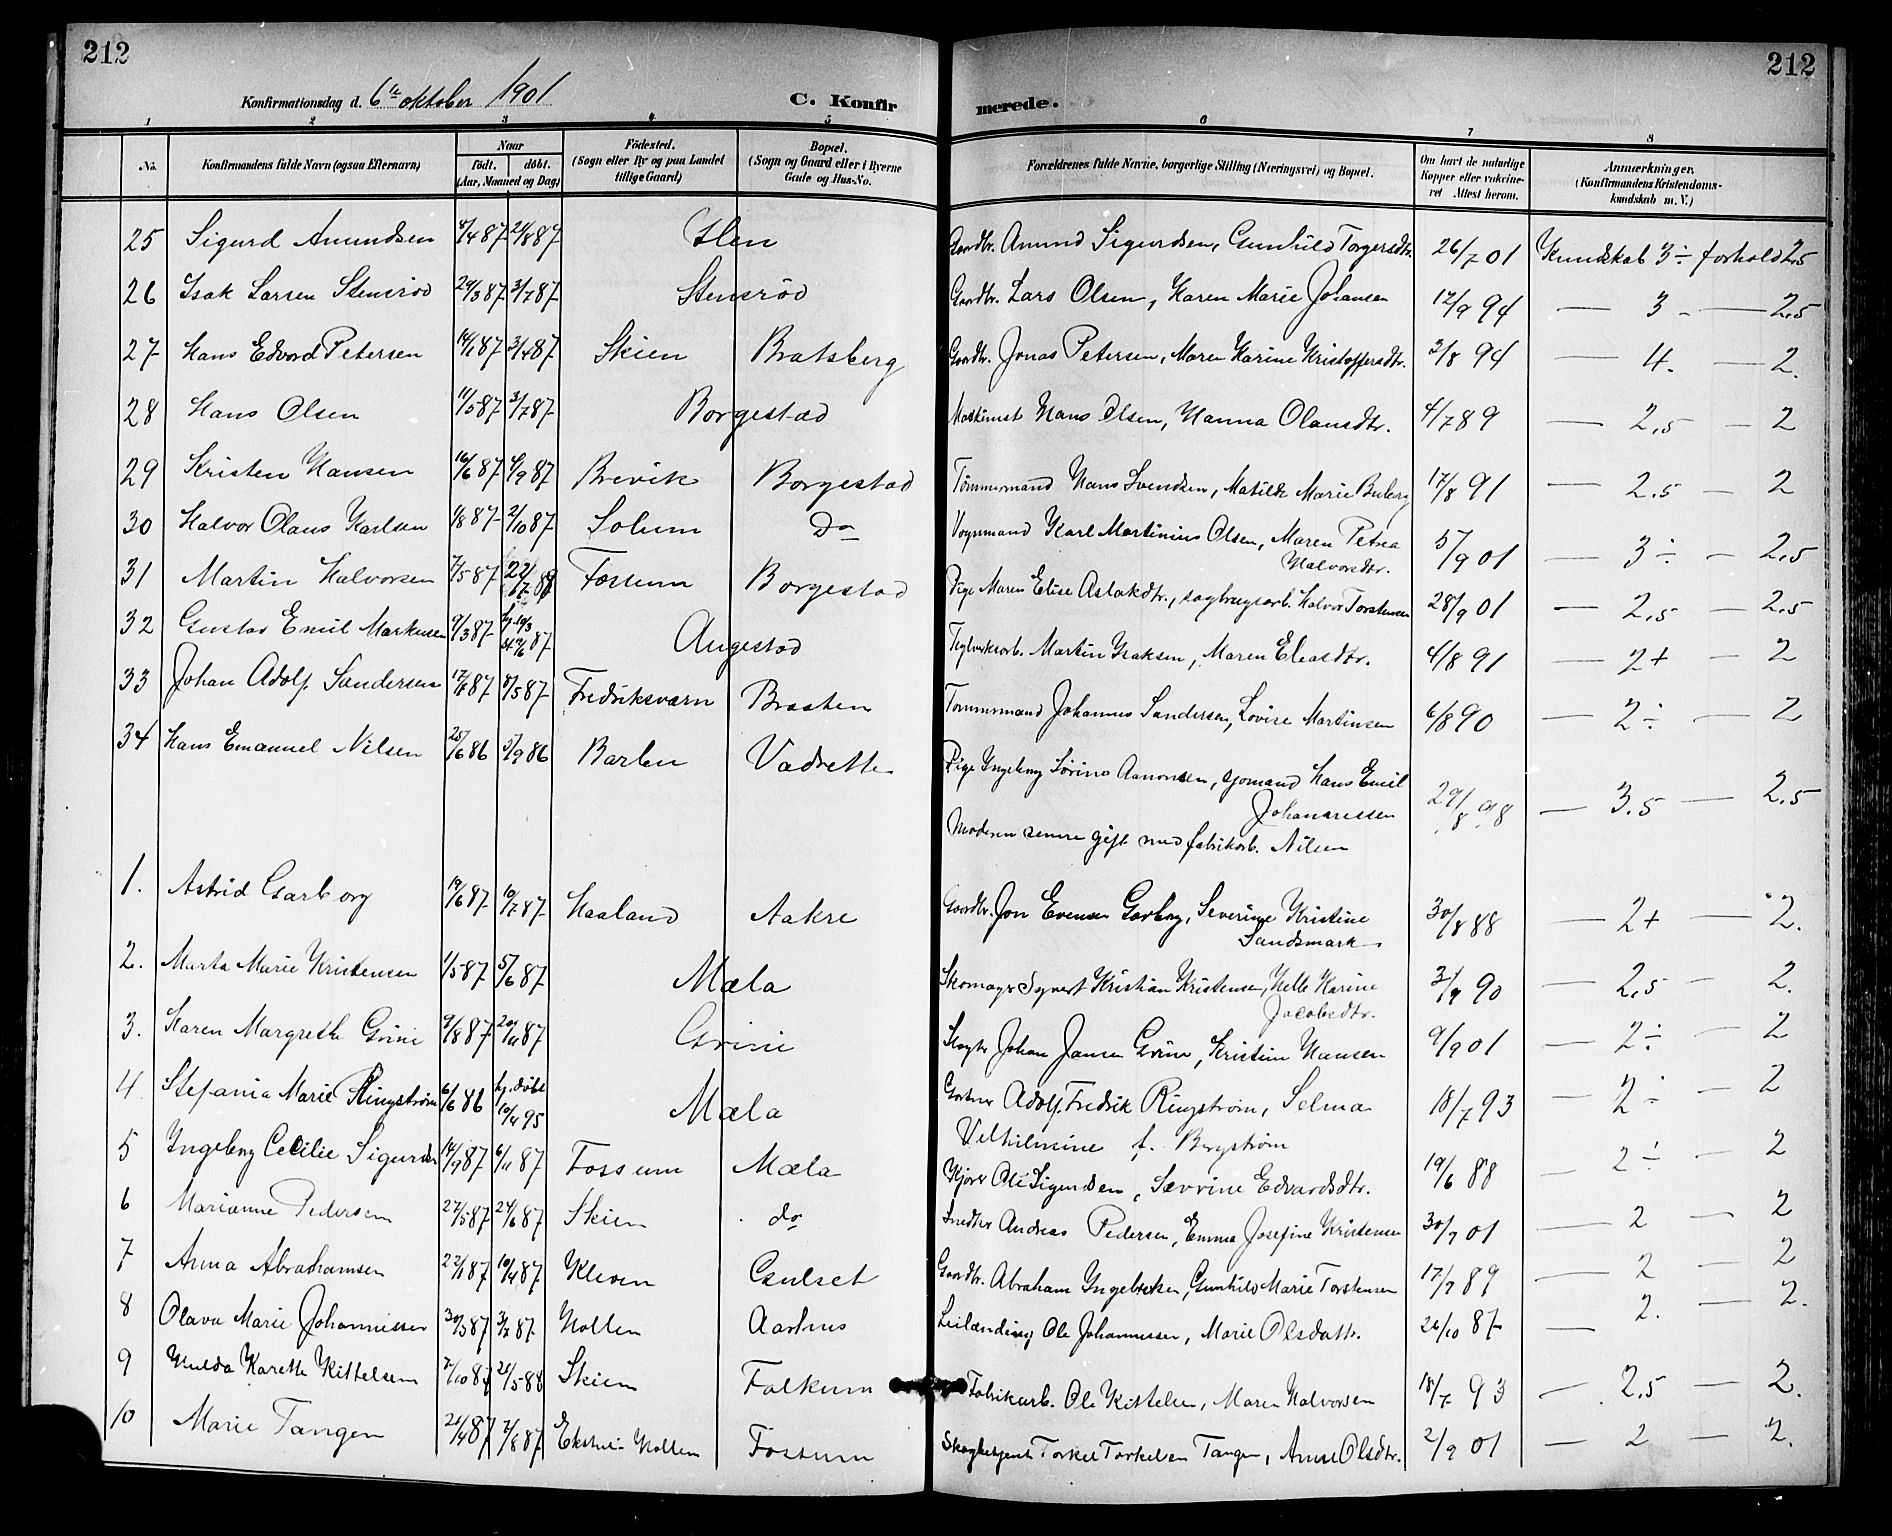 212
212
Konfirmationsdag d. 6te oktober 1901
C. Konfirmerede.
1 2 3 4 5 6 7 8
No. Konfirmandens fulde Navn (ogsaa Efternavn) Naar født. døbt. (Aar, Maaned og Dag) Fødested. (Sogn eller By og paa Landet tillige Gaard) Bopæl. (Sogn og Gaard eller i Byerne Gade og Hus-No. Forældrenes fulde Navne, borgerlige Stilling (Næringsvei) og Bopæl. Om havt de naturlige Kopper eller vakcineret Attest herom. Anmærkninger. (Konfirmandens Kristendomskundskab m. V.)
25 Sigurd Amundsen 4/4 87 21/8 87 Gaardbr. Amund Sigurdsen, Gunhild Torgersdtr. 26/7 01 Kundskab 3÷ forhold 2,5
26 Isak Larsen Stensrød 29/3 87 3/7 87 Stensrød Gaardbr. Lars Olsen, Karen Marie Johansen 12/9 94 — 3 — 2,5
27 Hans Edvard Petersen 14/1 87 3/4 87 Skien Bratsberg Gaardbr. Jonas Petersen, Maren Karine Kristoffersdtr. 3/8 94 — 4. — 2.
28 Hans Olsen 11/5 87 3/7 87 Borgestad Maskinist Hans Olsen, Hanna Olausdtr. 4/7 89 — 2,5 — 2
29 Kristen Hansen 16/6 87 4/9 87 Brevik Borgestad Tømmermand Hans Svendsen, Matilde Marie 17/8 91 — 2,5 — 2
30 Halvor Olaus Karlsen 1/8 87 2/10 87 Solum Do Vognmand Karl Martinius Olsen, Maren Petrea Halvorsdtr. 5/9 01 — 3÷ — 2,5
31 Martin Halvorsen 7/5 87 Fossum Borgestad Pige Maren Elise Aslakdtr., sagbrugsarb. Halvor Torstensen 28/9 01 — 2,5 — 2,5
32 Gustav Emil Markusen 9/3 87 Augestad Teglverksarb. Martin Isaksen, Maren Eleasdtr. 4/8 91 — 2+ — 2
33 Johan Adolf Sandersen 87 8/5 87 Fredriksværn Braaten Tømmermand Johannes Sandersen, Lovise Martinsen 6/8 90 — 2÷ — 2
34 Hans Emanuel Nilsen 25/6 86 5/9 86 Barlen Vadrette Pige Ingeborg Sørine Aanonsen, sjømand Hans Emil Johannessen 29/8 98 — 3.5 — 2.5
Moderen senere gift med fabrikarb. Nilsen
1. Astrid Garborg 19/6 87 10/7 87 Haaland Aakre Gaardbr. Jon Evensen Garborg, Severine Kristine Sandsmark 30/8 88 — 2+ — 2.
2. Marta Marie Kristensen 1/5 87 5/6 87 Mæla Skomager Syvert Kristian Kristensen, Helle Karine Jacobsdtr. 3/9 90 — 2,5 — 2.
3. Karen Margrethe Grini 9/8 87 20/11 87 Grini Johan Jansen Grini, Kristine Hansen 9/9 01 — 2÷ — 2
4 Stefania Marie Ringstrøm 6/6 86 hj. døbt 10/4 95 Mæla Gartner Adolf Fredrik Ringstrøm, Selma Vilhelmine f. Bergstrøm 18/7 93 — 2÷ — 2
5 Ingeborg Cecilie Sigurdsen 14/9 87 6/11 87 Fossum Mæla Kjører Ole Sigurdsen, Sævrine Edvardsdtr. 19/6 88 — 2÷ — 2
6 Marianne Pedersen 27/5 87 24/6 87 Skien do Andreas Pedersen, Emma Josefine Kristensen 30/9 01 — 2 — 2
7 Anna Abrahamsen 22/1 87 10/4 87 Kleven Gulset Gaardbr. Abraham Ingebretsen, Gunhild Marie Torstensen 17/7 89 — 2 — 2
8 Olava Marie Johannessen 30/3 87 87 Holten Aarhus Leilænding Ole Johannessen, Marie Olsdattr. 26/10 87 — 2. — 2.
9 Hulda Karette Kittelsen 7/10 87 21/5 88 Skien Falkum Fabrikarb. Ole Kittelsen, Maren Halvorsen 18/7 93 — 2,5 — 2.
10 Marie Tangen 21/4 87 7/8 87 Holten Fossum Skogbetjent Torkel Torkelsen Tangen, Anne Olsdtr. 2/9 01 — 2 — 2.